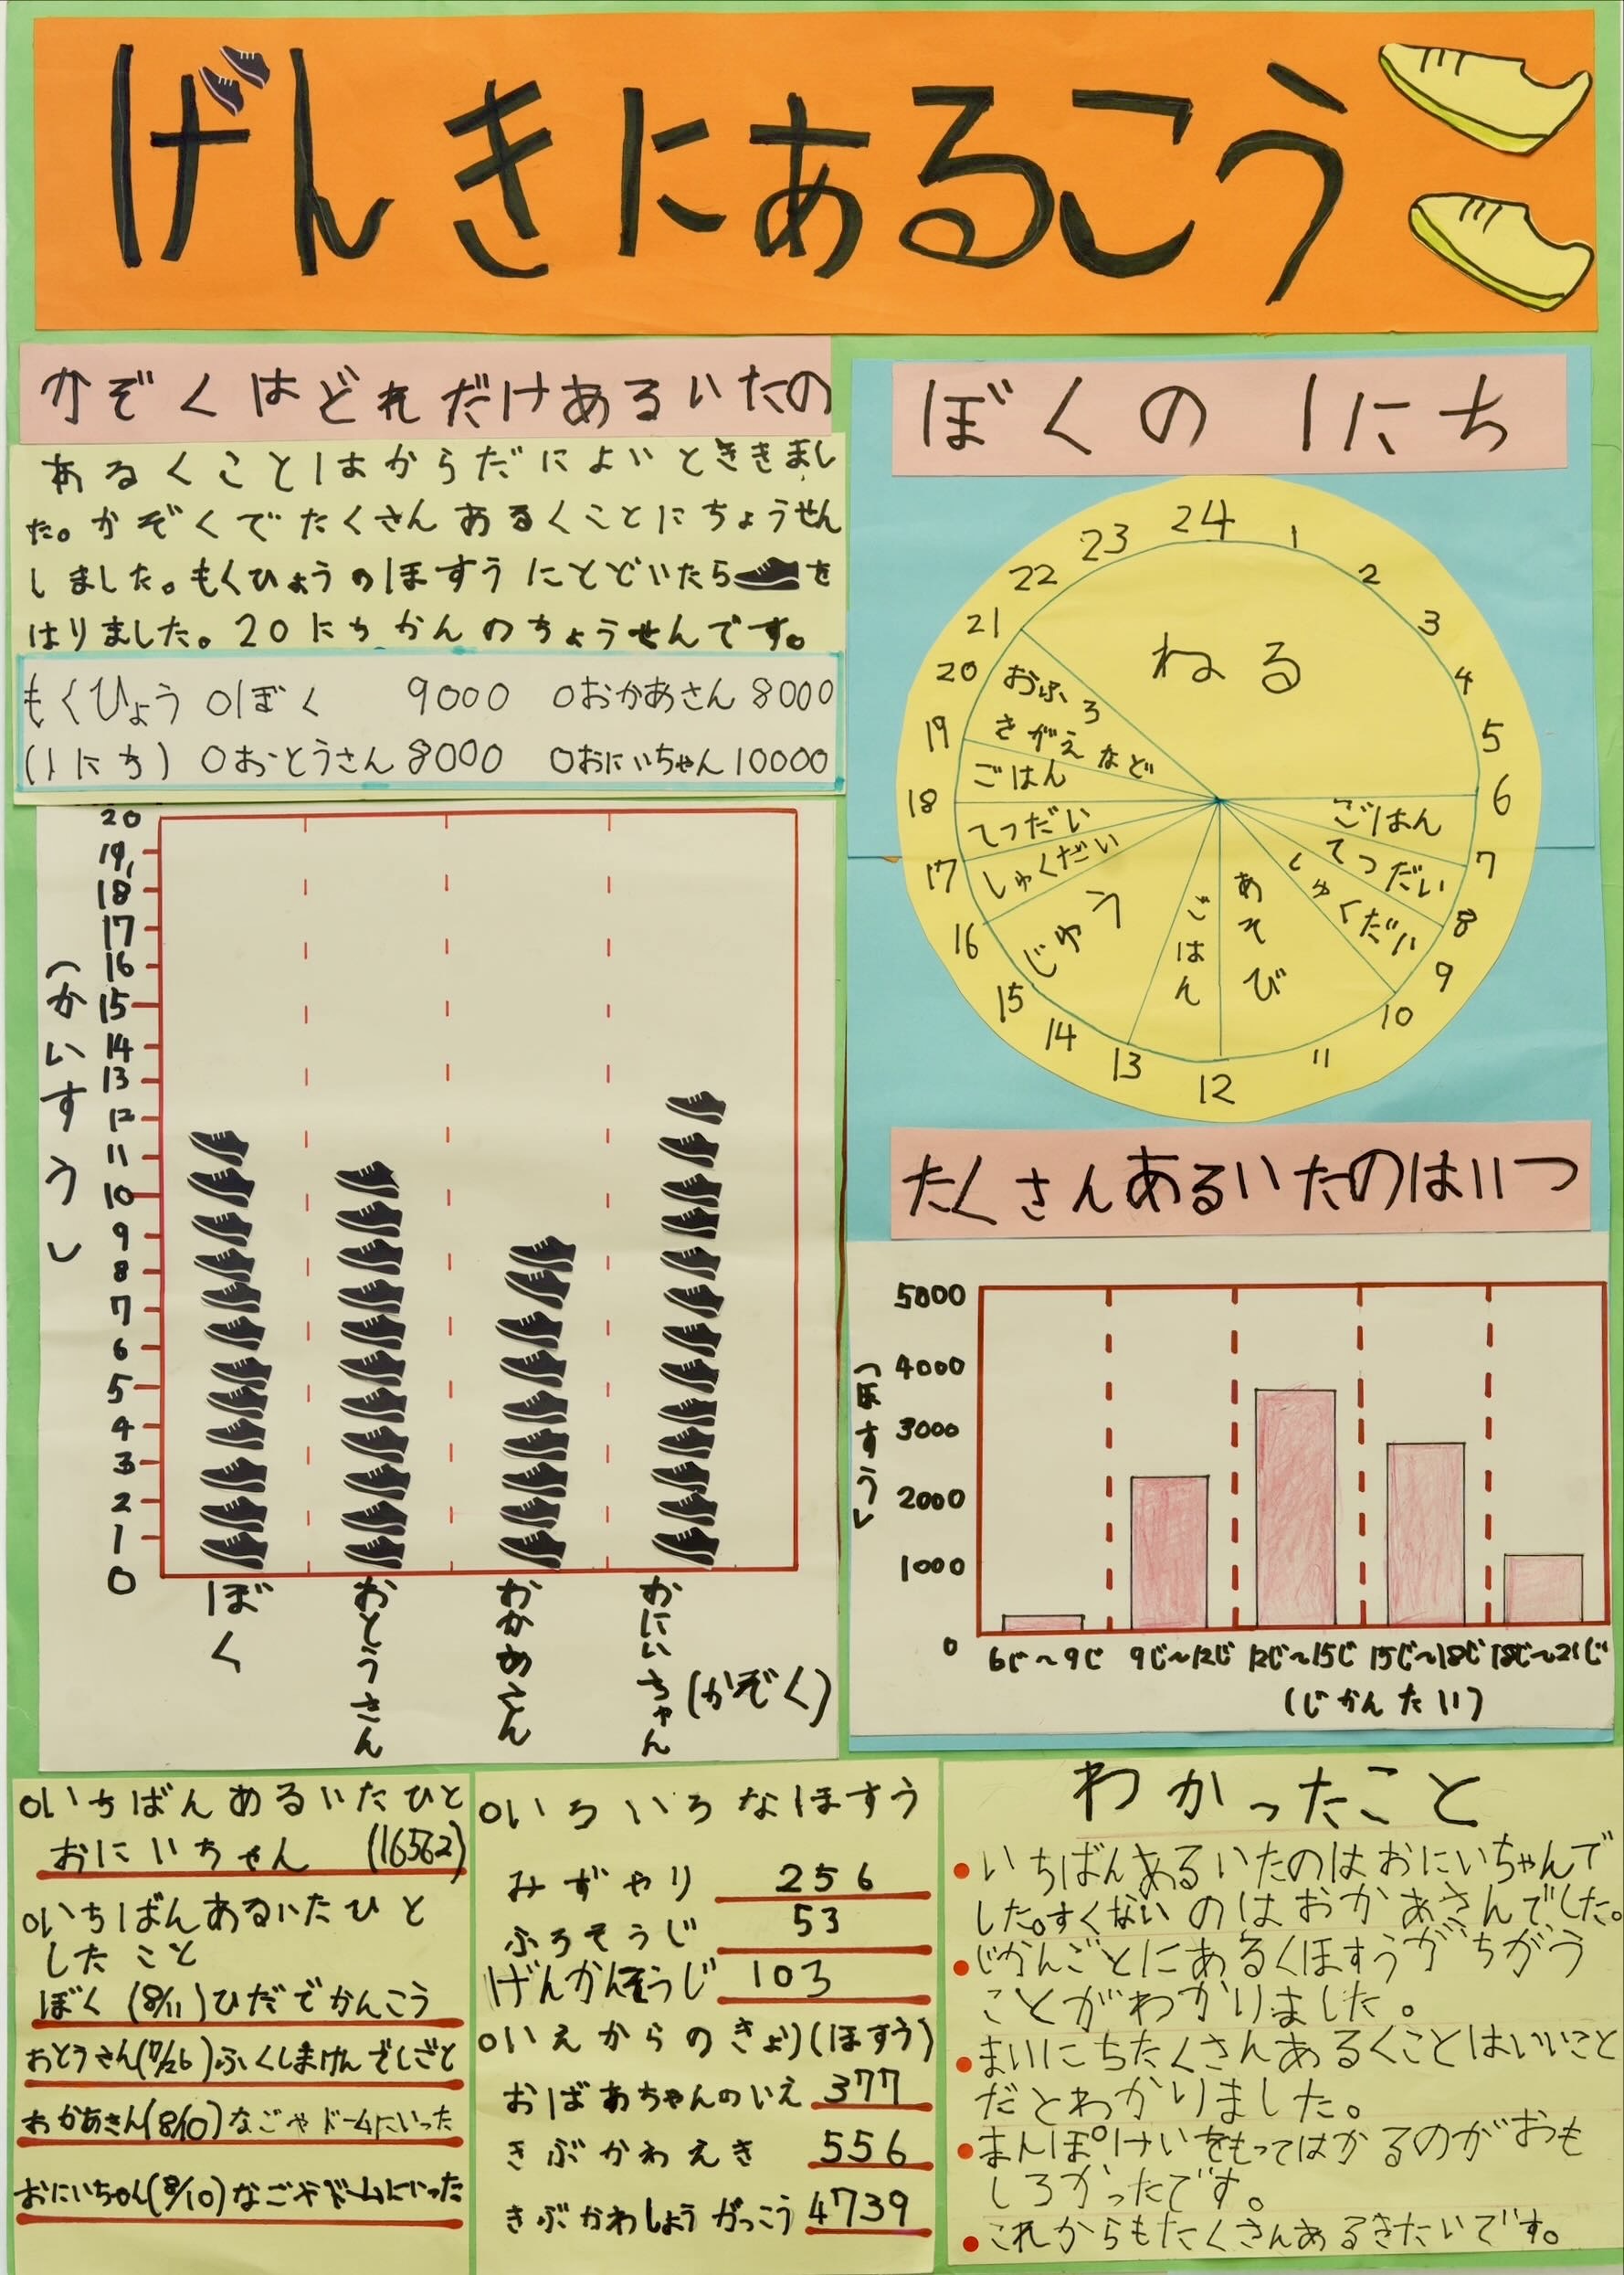 げんきにあるこう
かぞくはどれだけあるいたの
あるくことはからだによいとききまし
た。かぞくでたくさんあるくことにちょうせん
しました。もくひょうのほすうにとどいたらを
はりました。20にちかんのちょうせんです。
もくひょう ○ぼく 9000 ○おかあさん 8000
(1にち) ○おとうさん 8000 ○おにいちゃん 10000
(かいすう)
20
19
18
17
16
15
14
13
12
11
10
9
8
7
6
5
4
3
2
1
0
ぼく
おとうさん
おかあさん
おにいちゃん
(かぞく)
ぼくの1にち
24
1
2
3
4
5
6
7
8
9
10
11
12
13
14
15
16
17
18
19
20
21
22
23
ねる
ごはん
てつだい
しゅくだい
あそび
ごはん
じゆう
しゅくだい
てつだい
ごはん
おふろ
きがえなど
たくさんあるいたのはいつ
(ほすう)
5000
4000
3000
2000
1000
0
6じ〜9じ 9じ〜12じ 12じ〜15じ 15じ〜18じ 18じ〜21じ
(じかんたい)
○いちばんあるいたひと
おにいちゃん (16562)
○いちばんあるいたひと
したこと
ぼく (8/11)ひだでかんこう
おとうさん(7/26)ふくしまけんでしごと
おかあさん(8/10)なごやドームにいった
おにいちゃん(8/10)なごやドームにいった
○いろいろなほすう
みずやり 256
ふろそうじ 53
げんかんそうじ 103
○いえからのきょり(ほすう)
おばあちゃんのいえ 377
きぶかわえき 556
きぶかわしょうがっこう 4739
わかったこと
•いちばんあるいたのはおにいちゃんで
した。すくないのはおかあさんでした。
•じかんごとにあるくほすうがちがう
ことがわかりました。
•まいにちたくさんあるくことはいいこと
だとわかりました。
•まんぽけいをもってはかるのがおも
しろかったです。
•これからもたくさんあるきたいです。